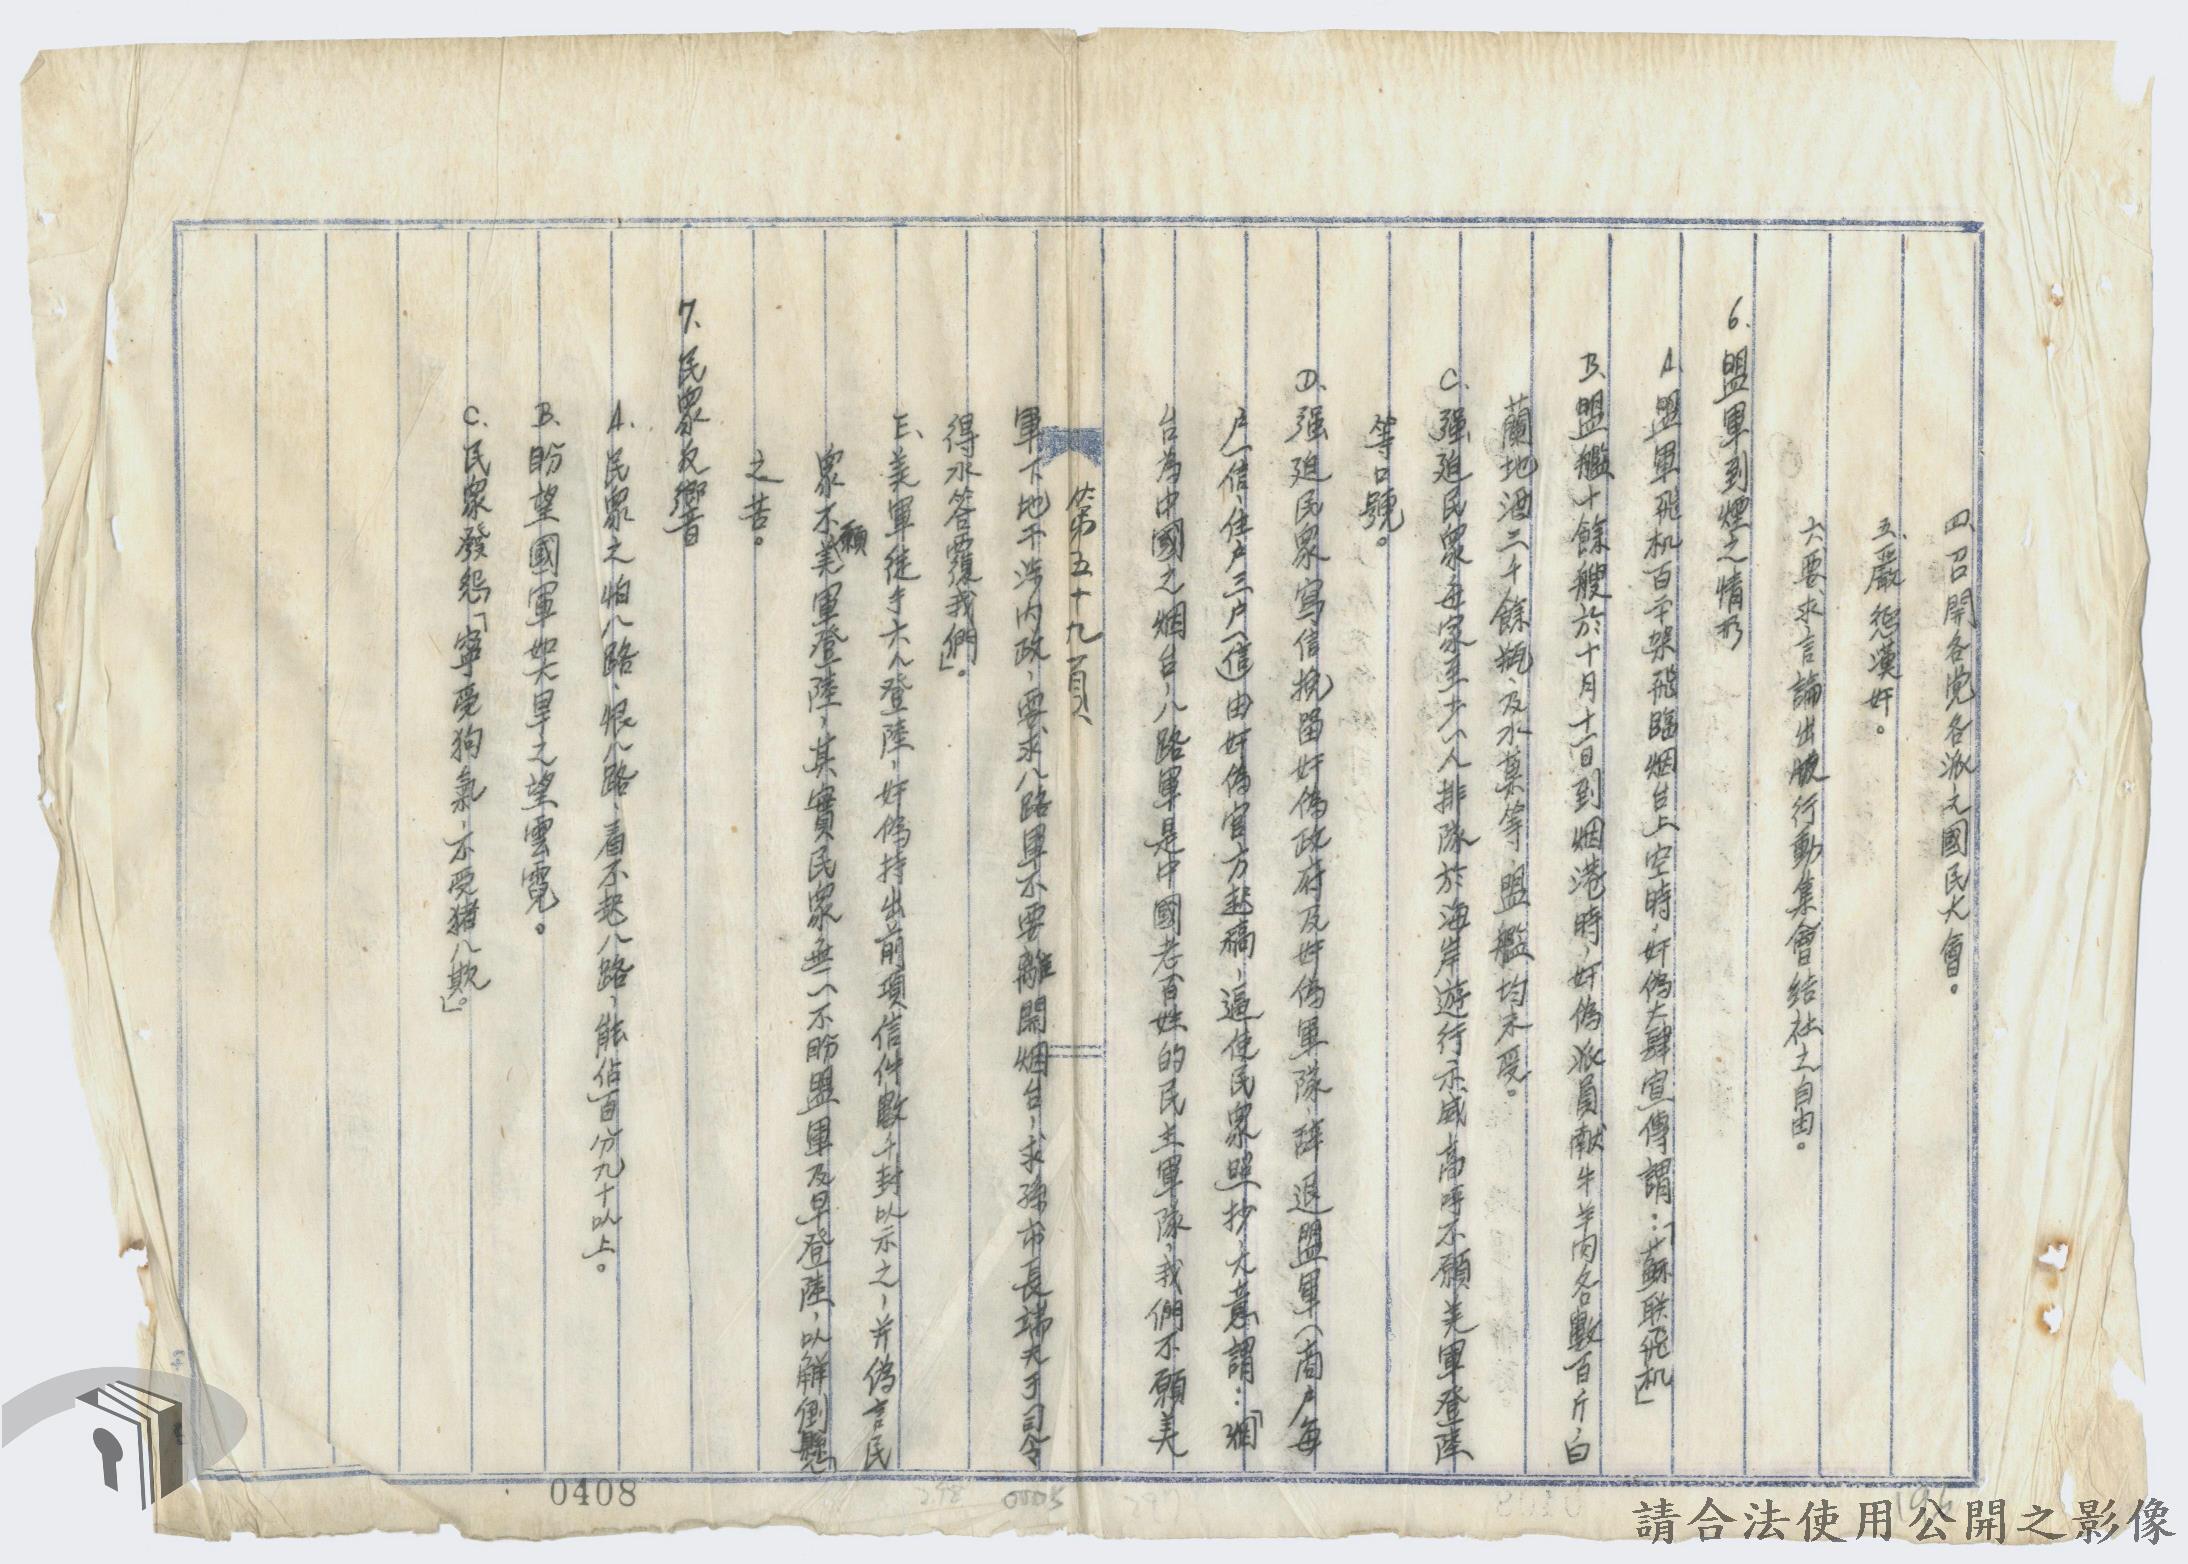 四、召開各党各派之國民大會。
五、嚴惩漢奸。
六、要求言論出版行動集會結社之自由。
6、盟軍到煙之情形
A、盟軍飛机百二十架飛臨烟台上空時，奸偽大肆宣傳謂：「蘇联飛机」
B、盟艦十餘艘於十月十一日到烟港時，奸偽派員献牛羊肉各數百斤，白
蘭地酒二千餘瓶，及水菓等，盟艦均未受。
C、强迫民眾每家至少一人排隊於海岸遊行示威高呼不願美軍登陸
等口號。
D、强迫民眾寫信挽留奸偽政府及奸偽軍隊，辞退盟軍（商户每
户一信，住户三户一信）由奸偽官方起稿，逼使民眾照抄，大意謂：「烟
台為中國之烟台，八路軍是中國老百姓的民主軍隊，我們不願美
第五十九頁
軍下地干涉内政，要求八路軍不要離開烟台，求孫市長端夫于司令
得水答覆我們」。
E、美軍徒手六人登陸，奸偽持出前項信件數千封以示之，并偽言民
眾不願美軍登陸，其實民眾無一不盼盟軍及早登陸，以解倒懸
之苦。
7、民眾反響
A、民眾之怕八路，恨八路，看不起八路，能佔百分九十以上。
B、盼望國軍如大旱之望雲霓。
C、民眾發怨「寧受狗氣，不受猪八欺」。
0408
0005
196
請合法使用公開之影像